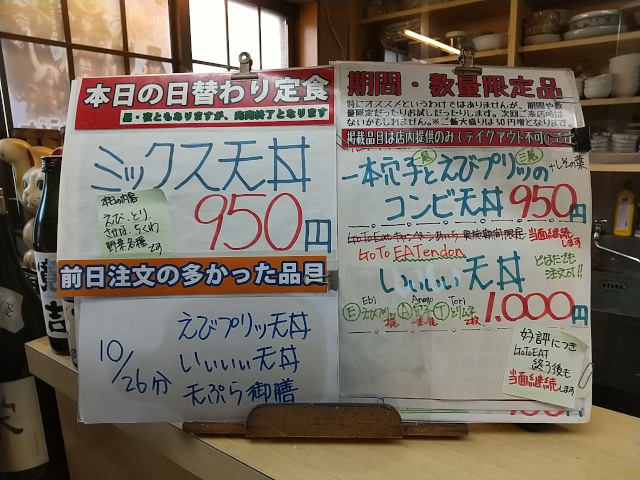 本日の日替わり定食
昼・夜ともありますが、両刻終了となります
ミックス天丼
本日の内容
えび、とり、
さかな、らくわ
野菜各種
です
950円
前日注文の多かった品目
10/26分
えびプリッ天丼
いいいい天丼
天ぷら御膳
期間・数量限定品
特にオススメというわけではありませんが、期間や数
量限定だったりお試しだったりします。次回ご来店時は
ないかもしれません。※ご飯大盛りは50円増となります
掲載品目は店内提供のみ(テイクアウト不可)
一本穴子と二尾えびプリッの
三尾
+しその葉
コンビ天丼 950円
当面継続
します
GoTo EATendon
いいいい天丼
どなたでも
注文可!!
Ebi
Anago
Tori
E えびプリッ
A 穴子
T とりムネ
2枚
1,000円
好評につき
GoToEAT
終了後も
当面継続します